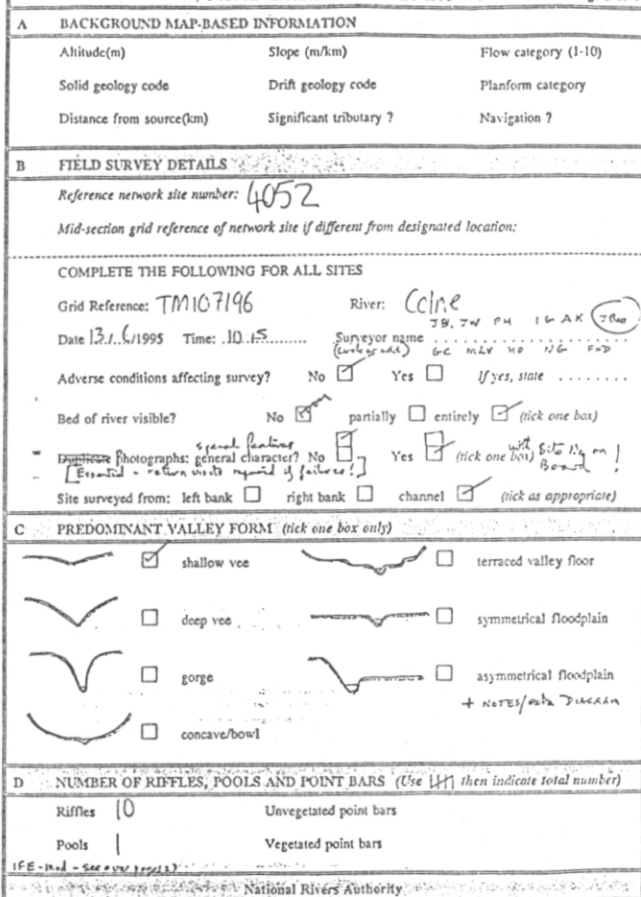 A BACKGROUND MAP-BASED INFORMATION
Altitude(m) Slope (m/km) Flow category (1-10)
Solid geology code Drift geology code Planform category
Distance from source(km) Significant tributary ? Navigation ?
B FIELD SURVEY DETAILS
Reference network site number: 4052
Mid-section grid reference of network site if different from designated location:
COMPLETE THE FOLLOWING FOR ALL SITES
Grid Reference: TM107196 River: Colne
JB, JW PH IG AK
Date 13/.6/1995 Time: .10.15......... Surveyor name
GC MLV HD NG FHD
Adverse conditions affecting survey? No Yes If yes, state ........
Bed of river visible? No partially entirely (tick one box)
special features
photographs: general character? No Yes (tick one box) with Site No on Board !
[Essential - return visits required if failures!]
Site surveyed from: left bank right bank channel (tick as appropriate)
C PREDOMINANT VALLEY FORM (tick one box only)
shallow vee terraced valley floor
deep vee symmetrical floodplain
gorge asymmetrical floodplain
+ NOTES/ DIAGRAM
concave/bowl
D NUMBER OF RIFFLES, POOLS AND POINT BARS (Use then indicate total number)
Riffles 10 Unvegetated point bars
Pools 1 Vegetated point bars
IFE-mod - see over
National Rivers Authority